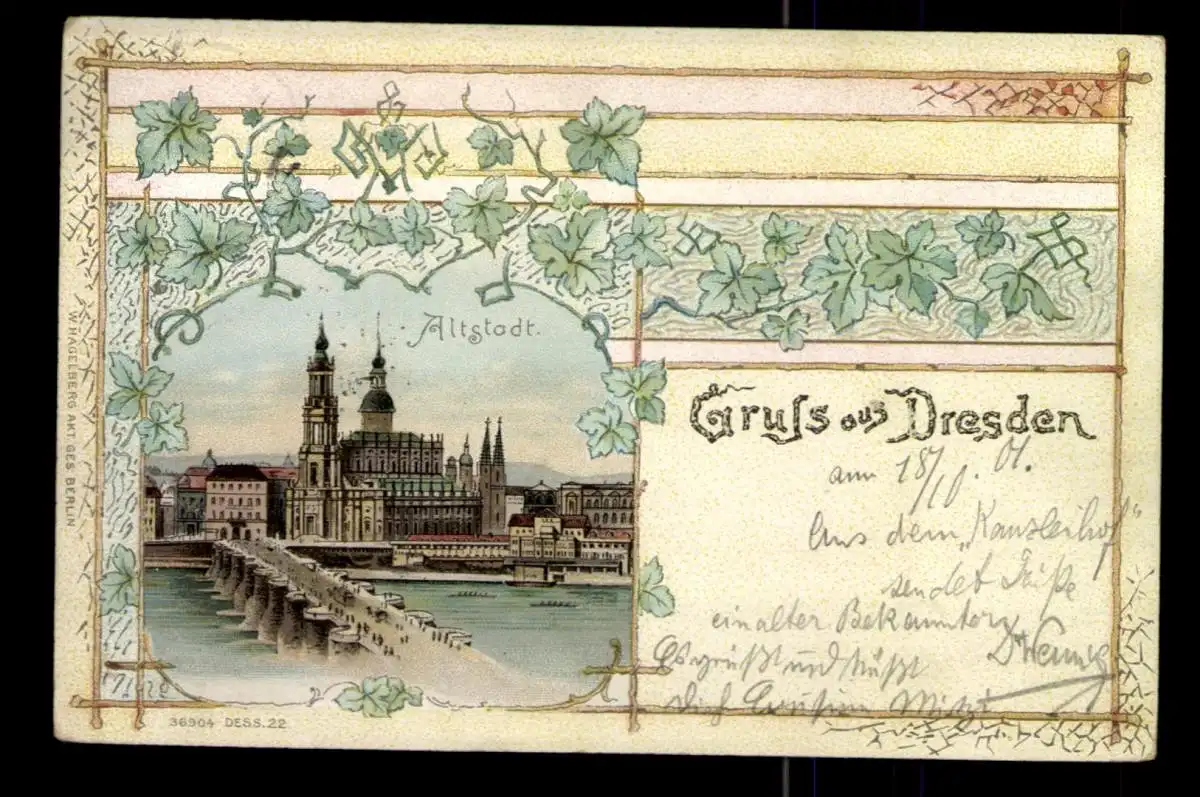 Altstadt.
Gruss aus Dresden
am 18/10. 01.
Aus dem „Kanzleihof"
sendet Grüße
ein alter Bekannter
Es grüßt und küßt
Dich Cousine Mitzi
W. HAGELBERG AKT. GES. BERLIN
36904 DESS. 22